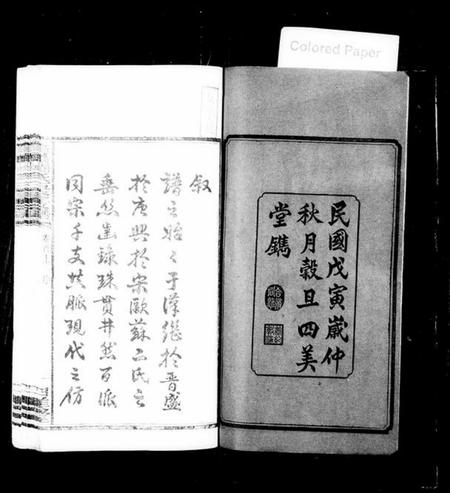 Colored Paper
民國戊寅歲仲
秋月穀旦四美
堂鐫
叙
譜之始々于漢繼於晋盛
於唐興於宋歐蘇二氏之
垂丝出錄珠貫井然百派
同宗千支共脈現代之仿